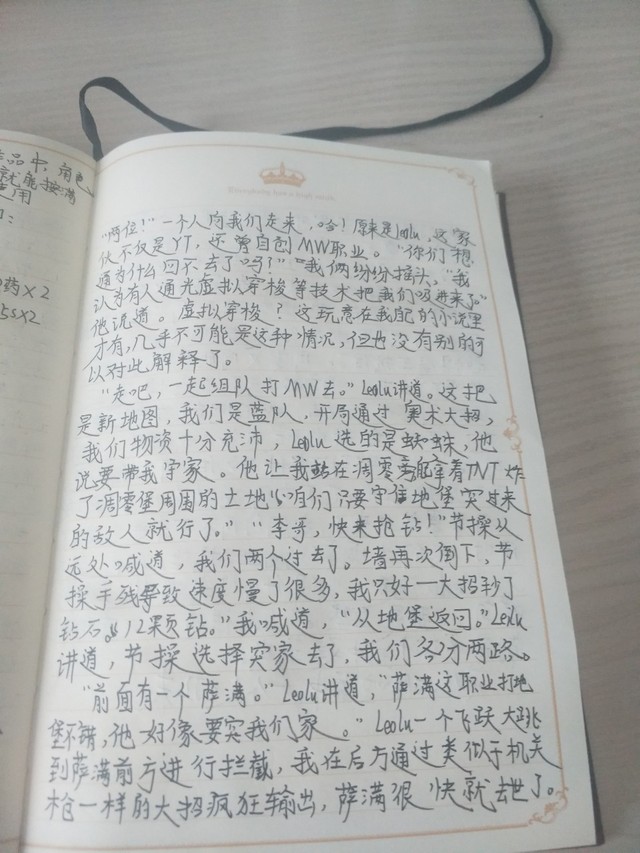 品中,角色
就能按满
使用
药X2
5sX2
“两位!”一个人向我们走来,哈!原来是leolu,这家
伙不仅是YT,还曾自创MW职业。“你们想
通为什么回不去了吗?”“我俩纷纷摇头,“我
认为有人通光虚拟穿梭等技术把我们吸进来了。”
他说道。虚拟穿梭?这玩意在我配的小说里
才有,几乎不可能是这种情况,但也没有别的可
以对此解释了。
“走吧,一起组队打MW去。”Leolu讲道。这把
是新地图,我们是蓝队,开局通过奥术大招,
我们物资十分充沛,Leolu选的是蜘蛛,他
说要带我守家。他让我站在凋零旁拿着TNT炸
了凋零堡周围的土地“咱们只要守住地堡突过来
的敌人就行了。”“李哥,快来抢钻!”节操从
远处喊道,我们两个过去了。墙再次倒下,节
操手残导致速度慢了很多,我只好一大招秒了
钻石。“12颗钻。”我喊道,“从地堡返回。”Leolu
讲道,节操选择突家去了,我们各分两路。
“前面有一个萨满。”Leolu讲道,“萨满这职业打地
堡不错,他好像要突我们家。”Leolu一个飞跃大跳
到萨满前方进行拦截,我在后方通过类似于机关
枪一样的大招疯狂输出,萨满很快就去世了。